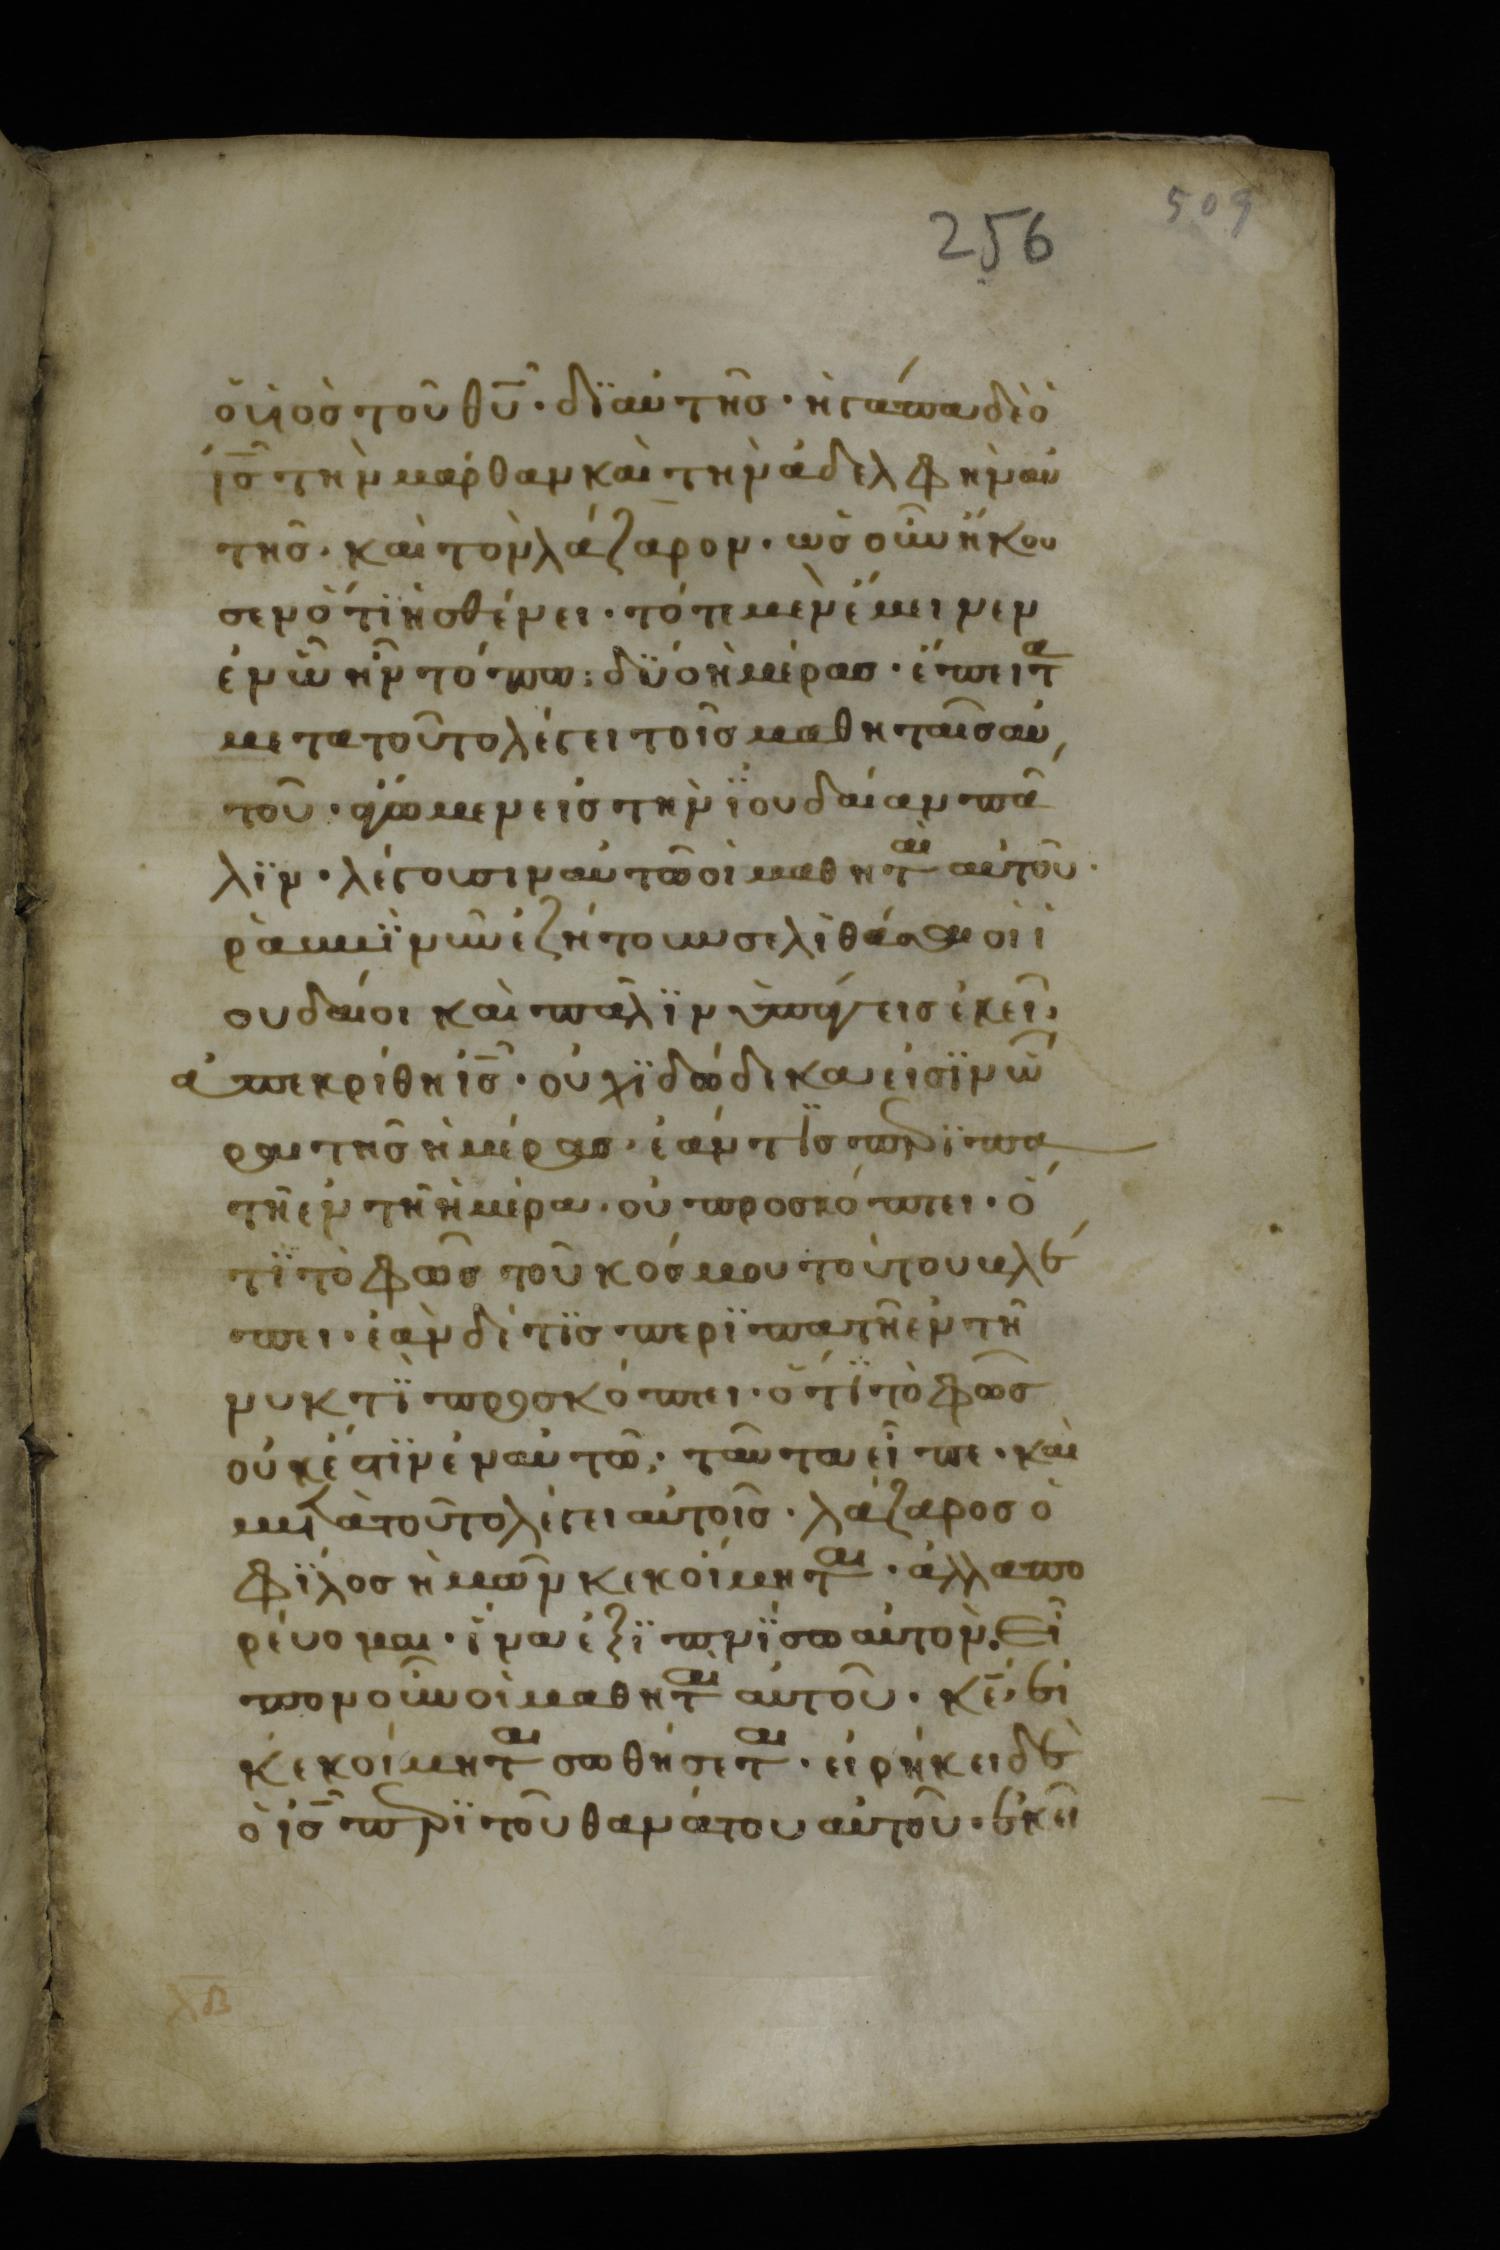 509
256
ὁ υἱὸσ τοῦ θῦ · δϊ αὐτῆσ · ἠγάπα δὲ ὁ
ἰσ̅ τὴν μάρθαν καὶ τὴν ἀδελφὴν αὐ
τῆσ · καὶ τὸν λάζαρον · ὡσ οὖν ἤκου
σεν ὅτϊ ἠσθένει · τότε μὲν ἔμεινεν
ἐν ὧ ἦν τόπω : δύο ἡμέρασ · ἔπειτα
μετα τοῦτο λέγει τοῖσ μαθηταῖσ αὐ
τοῦ · ἄγωμεν εἰσ τὴν ϊουδαίαν πά
λϊν · λέγουσιν αὐτῶ οἱ μαθηταὶ αὐτοῦ ·
ῥαββϊ νῦν ἐζήτουν σε λιθάσαι οἱ ἰ
ουδαίοι καὶ πάλϊν ὑπάγεισ ἐκεῖ ·
ἀπεκρίθη ἰσ̅ · οὐχϊ δώδεκα εἰσϊν ὧ
ραι τῆσ ἡμέρασ · ἐάν τϊσ περϊπα
τῆ ἐν τῆ ἡμέρα · οὐ προσκόπτει · ὅ
τϊ τὸ φῶσ τοῦ κόσμου τούτου βλέ
πει · ἐὰν δέ τϊσ περϊπατῆ ἐν τῆ
νυκτϊ προσκόπτει · ὅτϊ τὸ φῶσ
οὐκ ἔστϊν ἐν αὐτῶ · ταῦτα εἶπε · καὶ
μετὰ τοῦτο λέγει αὐτοῖσ · λάζαροσ ὁ
φϊλοσ ἡμῶν κεκοίμηται · ἀλλα πο
ρεύομαι · ἵνα ἐξϊπνϊσω αὐτόν. Εἶ
πον οὖν οἱ μαθηταὶ αὐτοῦ · κε̅ εἰ
κεκοίμηται σωθήσεται · εἰρήκει δὲ
ὁ ἰσ̅ περϊ τοῦ θανάτου αὐτοῦ · ἐκεῖ
λβ